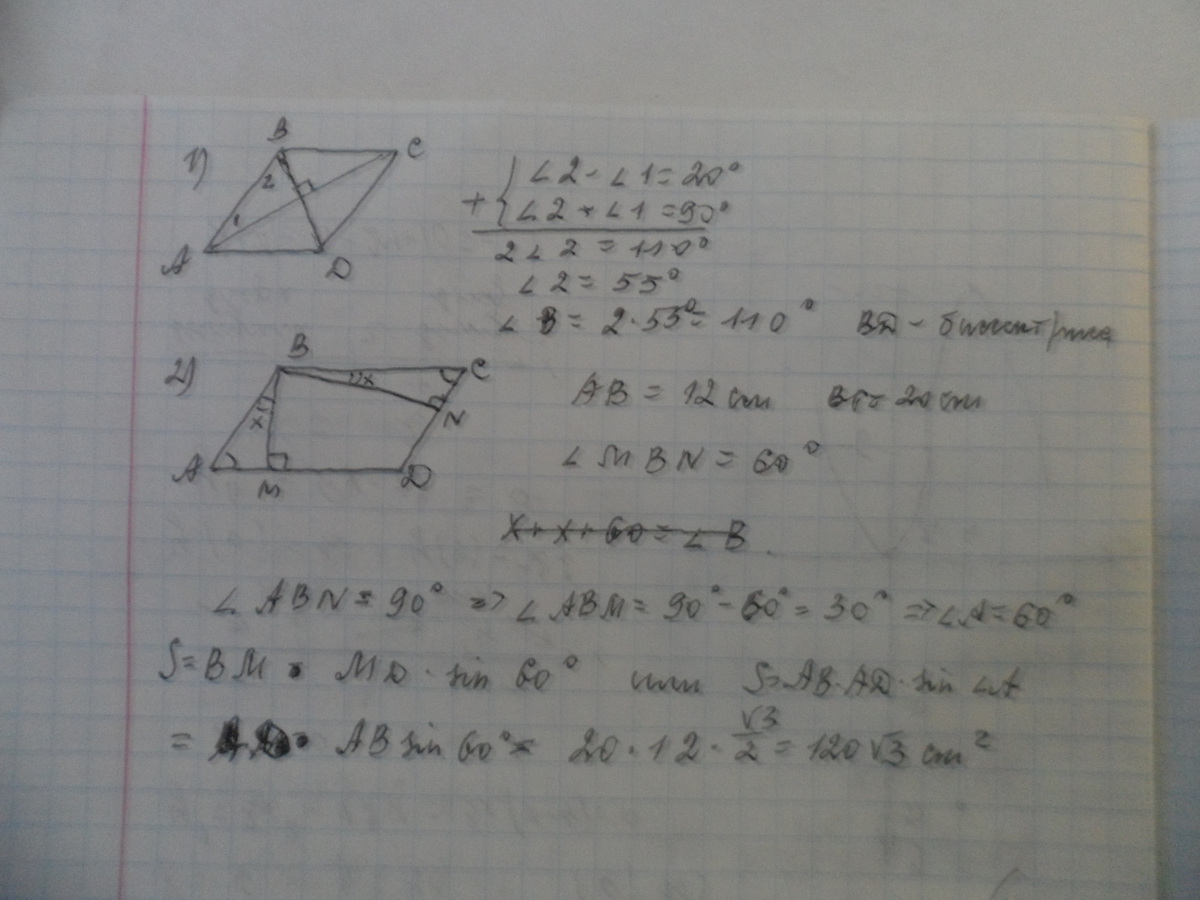 1)
B
C
2
1
A
D
+ { ∠2 - ∠1 = 20°
∠2 + ∠1 = 90°
2∠2 = 110°
∠2 = 55°
∠B = 2·55° = 110° BD - биссектриса
2)
B
C
x
x
N
A
M
D
AB = 12 cm BC = 20 cm
∠MBN = 60°
x + x + 60 = ∠B.
∠ABN = 90° => ∠ABM = 90° - 60° = 30° => ∠A = 60°
S = BM · MD · sin 60° или S = AB·AD·sin ∠A
= AB sin 60° = 20·12·√3/2 = 120√3 cm²